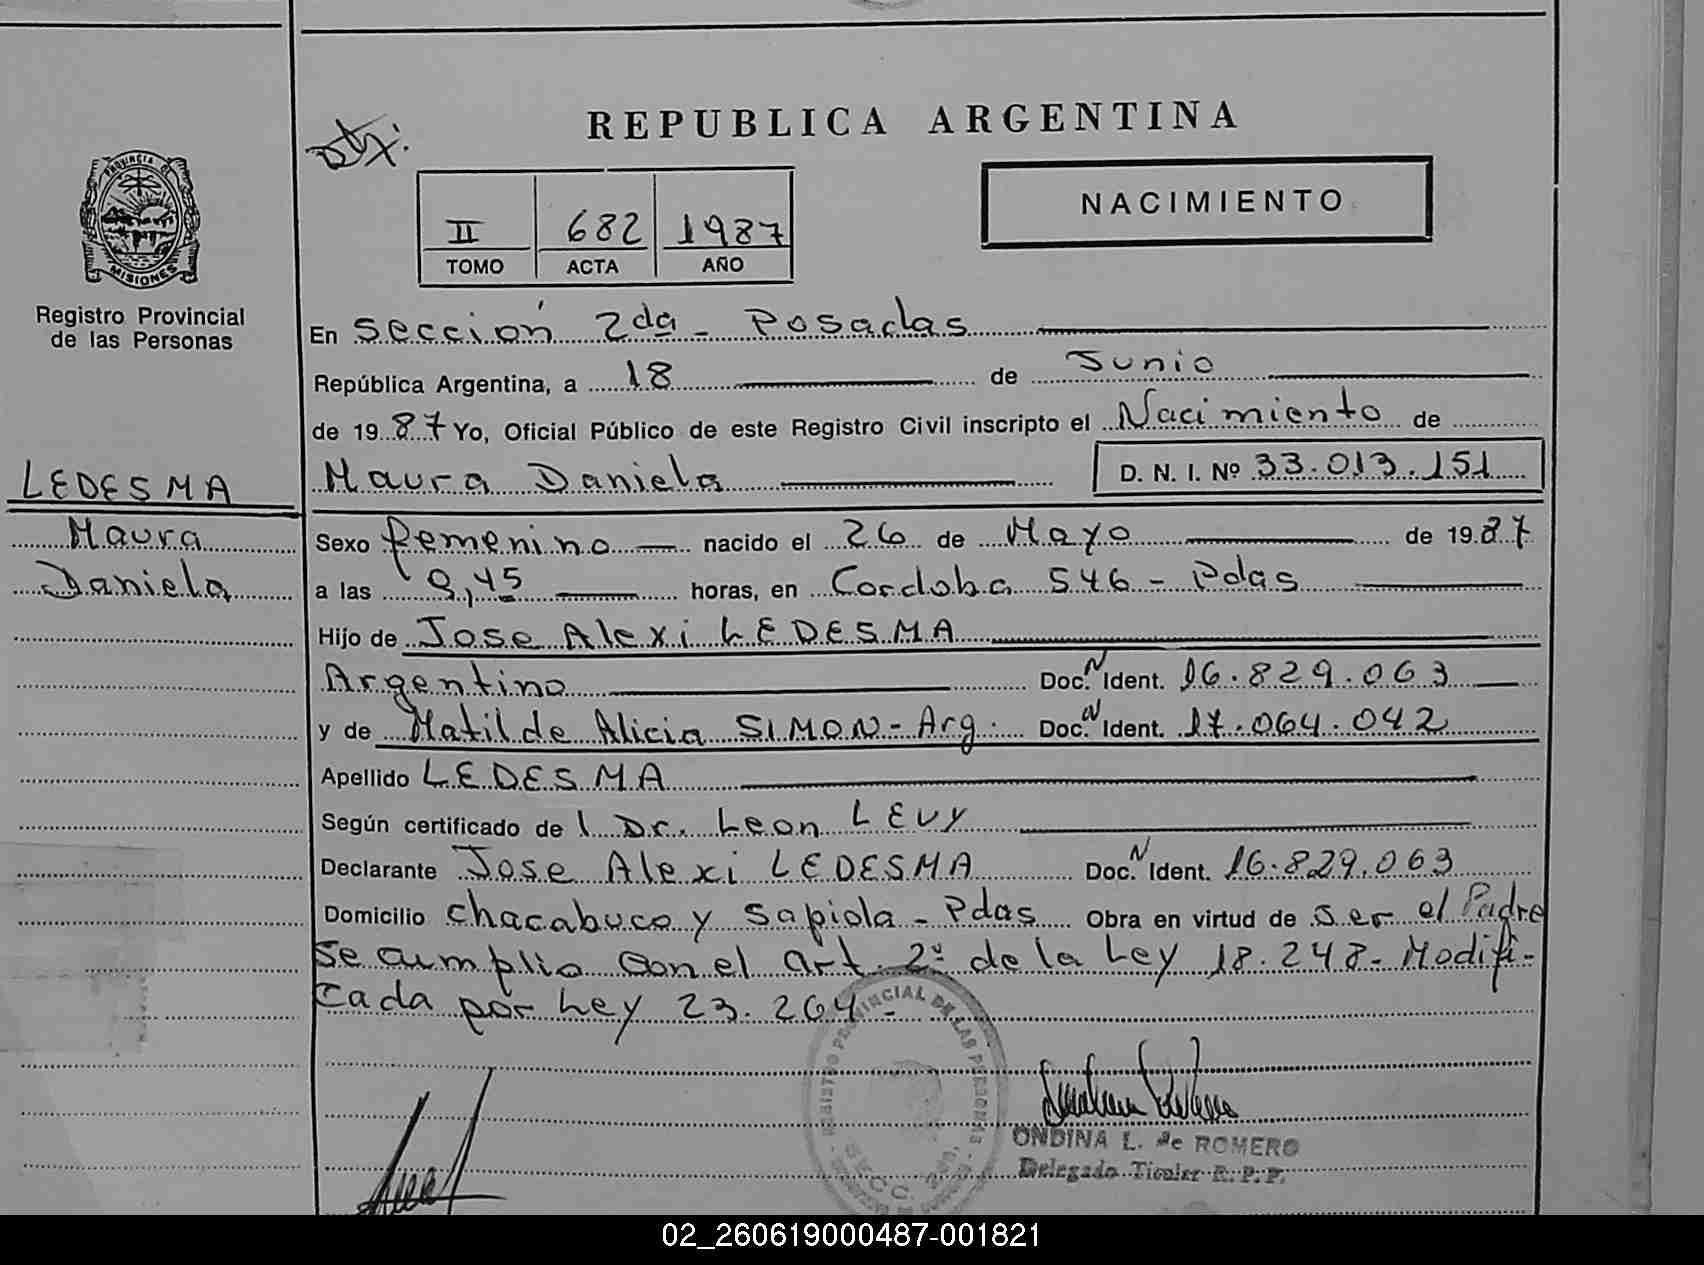 REPUBLICA ARGENTINA
NACIMIENTO
II 682 1987
TOMO ACTA AÑO
PROVINCIA DE
MISIONES
Registro Provincial
de las Personas
LEDESMA
Maura
Daniela
En Sección 2da - Posadas
República Argentina, a 18 de Junio
de 1987 Yo, Oficial Público de este Registro Civil inscripto el Nacimiento de
Maura Daniela D. N. I. Nº 33.013.151
Sexo femenino nacido el 26 de Mayo de 1987
a las 9,45 horas, en Cordoba 546 - Pdas
Hijo de Jose Alexi LEDESMA
Argentino Doc. N Ident. 16.829.063
y de Matilde Alicia SIMON - Arg. Doc. N Ident. 17.064.042
Apellido LEDESMA
Según certificado de l Dr. Leon LEVY
Declarante Jose Alexi LEDESMA Doc. N Ident. 16.829.063
Domicilio Chacabuco y Sapiola - Pdas Obra en virtud de ser el Padre
Se cumplio con el art. 2º de la Ley 18.248 - Modifi-
cada por Ley 23.264 -
REGISTRO PROVINCIAL DE LAS PERSONAS
ONDINA L. de ROMERO
Delegado Titular R. P. P.
02_260619000487-001821